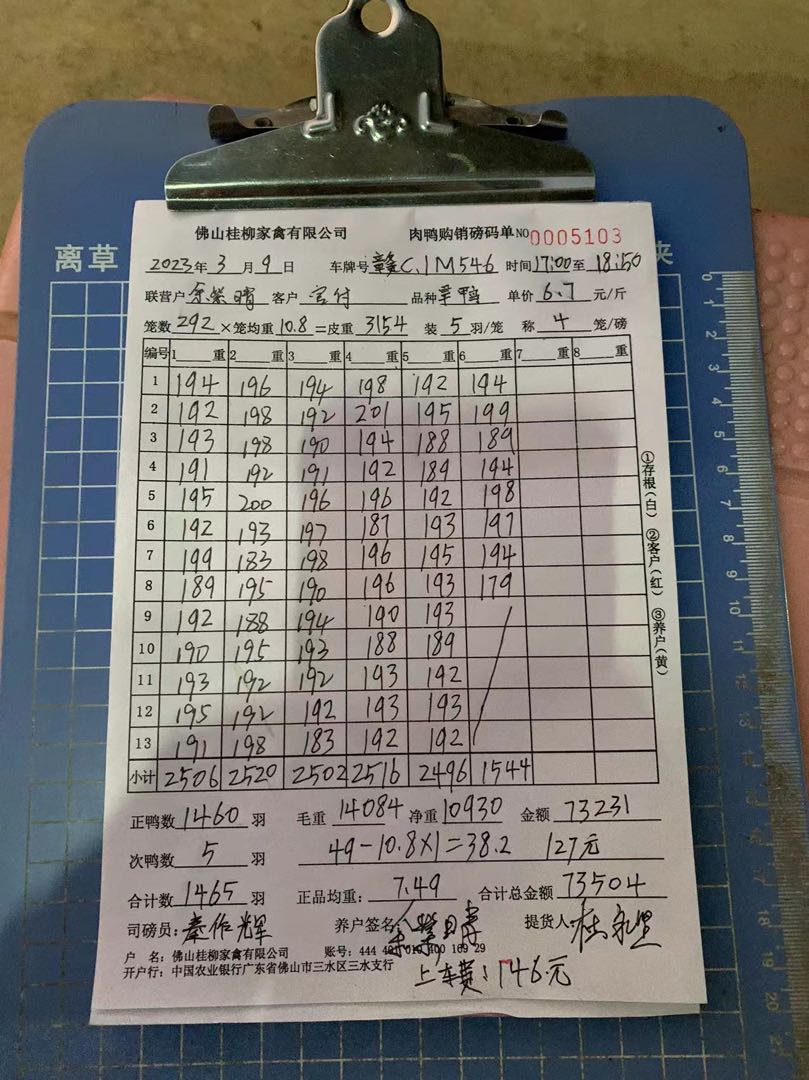 离草
佛山桂柳家禽有限公司 肉鸭购销磅码单 NO 0005103
2023年 3月 9日 车牌号 赣C.1M546 时间 17:00至 18:50
联营户 余紫晴 客户 官付 品种 羊鸭 单价 6.7 元/斤
笼数 292 ×笼均重 10.8 =皮重 3154 装 5 羽/笼 称 4 笼/磅
编号 1 重 2 重 3 重 4 重 5 重 6 重 7 重 8 重
1 194 196 194 198 192 194
2 192 198 192 201 195 199
3 193 198 190 194 188 189
4 191 192 191 192 189 194
5 195 200 196 196 192 198
6 192 193 197 187 193 197
7 199 183 198 196 195 194
8 189 195 190 196 193 179
9 192 188 194 190 193
10 190 195 193 188 189
11 193 192 192 193 192
12 195 192 192 193 193
13 191 198 183 192 192
小计 2506 2520 2502 2516 2496 1544
①存根(白) ②客户(红) ③养户(黄)
正鸭数 1460 羽 毛重 14084 净重 10930 金额 73231
次鸭数 5 羽 49-10.8×1=38.2 127元
合计数 1465 羽 正品均重: 7.49 合计总金额 73504
司磅员: 秦作辉 养户签名: 提货人:
户 名: 佛山桂柳家禽有限公司 账号: 444
开户行: 中国农业银行广东省佛山市三水区三水支行
上车费: 146元
0 1 2 3 4 5 6 7 8 9 10 11 12 13 14 15 16 17 18 19 20 21